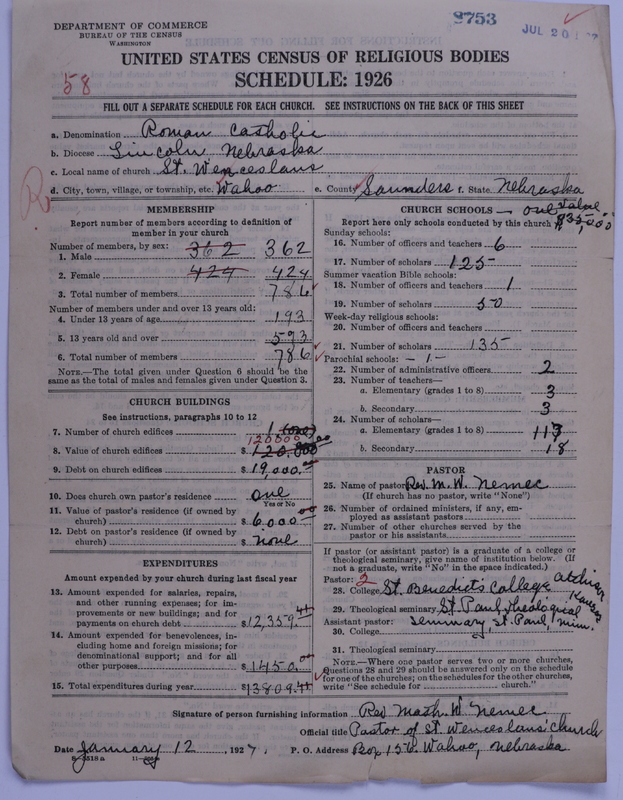 DEPARTMENT OF COMMERCE
BUREAU OF THE CENSUS
WASHINGTON
8753
JUL 20
UNITED STATES CENSUS OF RELIGIOUS BODIES
58
SCHEDULE: 1926
FILL OUT A SEPARATE SCHEDULE FOR EACH CHURCH. SEE INSTRUCTIONS ON THE BACK OF THIS SHEET
a. Denomination Roman Catholic
b. Diocese Lincoln Nebraska
c. Local name of church St. Wenceslaus
d. City, town, village, or township, etc. Wahoo e. County Saunders f. State Nebraska
R
MEMBERSHIP
Report number of members according to definition of
member in your church
Number of members, by sex:
1. Male 362 362
2. Female 424 424
3. Total number of members 786
Number of members under and over 13 years old:
4. Under 13 years of age 193
5. 13 years old and over 593
6. Total number of members 786
NOTE.—The total given under Question 6 should be the
same as the total of males and females given under Question 3.
CHURCH BUILDINGS
See instructions, paragraphs 10 to 12
7. Number of church edifices 1 (one)
120000
8. Value of church edifices $ 120,000 00
9. Debt on church edifices $ 19,000.
10. Does church own pastor's residence one
Yes or No
11. Value of pastor's residence (if owned by
church) $ 6,000 00
12. Debt on pastor's residence (if owned by
church) $ none
EXPENDITURES
Amount expended by your church during last fiscal year
13. Amount expended for salaries, repairs,
and other running expenses; for im-
provements or new buildings; and for
payments on church debt $12,359.41
14. Amount expended for benevolences, in-
cluding home and foreign missions; for
denominational support; and for all
other purposes $1450.00
15. Total expenditures during year $13809.41
CHURCH SCHOOLS — one value
Report here only schools conducted by this church $35,000
Sunday schools:
16. Number of officers and teachers 6
17. Number of scholars 125
Summer vacation Bible schools:
18. Number of officers and teachers 1
19. Number of scholars 50
Week-day religious schools:
20. Number of officers and teachers
21. Number of scholars 135
Parochial schools: - 1 -
22. Number of administrative officers 2
23. Number of teachers—
a. Elementary (grades 1 to 8) 3
b. Secondary 3
24. Number of scholars—
a. Elementary (grades 1 to 8) 117
b. Secondary 18
PASTOR
25. Name of pastor Rev. M. W. Nemec
(If church has no pastor, write "None")
26. Number of ordained ministers, if any, em-
ployed as assistant pastors
27. Number of other churches served by the
pastor or his assistants
If pastor (or assistant pastor) is a graduate of a college or
theological seminary, give name of institution below. (If
not a graduate, write "No" in the space indicated.)
Pastor: 2
28. College St. Benedict's College Atchison Kansas
29. Theological seminary St. Paul Theological
Assistant pastor: Seminary, St. Paul, Minn.
30. College
31. Theological seminary
NOTE.—Where one pastor serves two or more churches,
Questions 28 and 29 should be answered only on the schedule
for one of the churches; on the schedules for the other churches,
write "See schedule for church."
Signature of person furnishing information Rev Math. W Nemec
Official title Pastor of St. Wenceslaus' Church
Date January 12, 1927. P. O. Address Box 156. Wahoo, Nebraska.